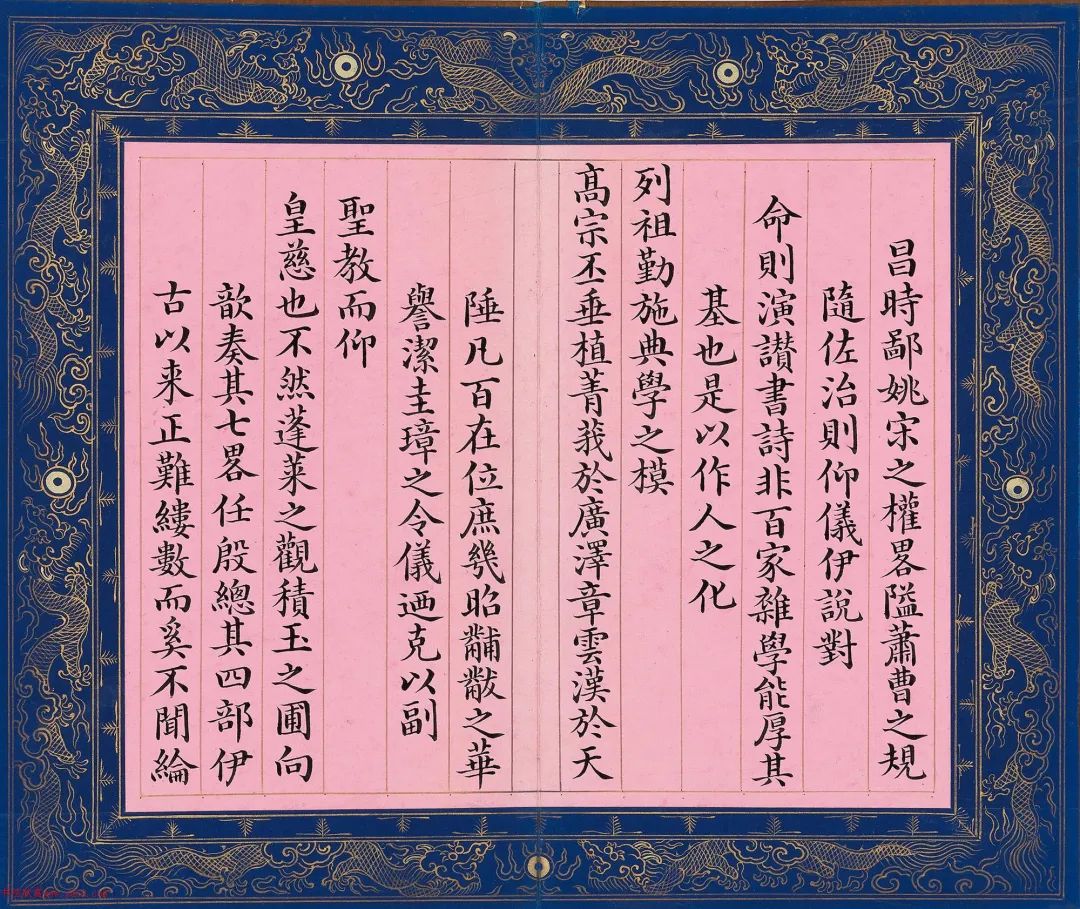 昌時鄙姚宋之權畧隘蕭曹之規
隨佐治則仰儀伊說對
命則演讃書詩非百家雜學能厚其
基也是以作人之化
列祖勤施典學之模
高宗丕垂植菁莪於廣澤章雲漢於天
陲凡百在位庶幾昭黼黻之華
譽潔圭璋之令儀迺克以副
聖教而仰
皇慈也不然蓬萊之觀積玉之圃向
歆奏其七畧任殷總其四部伊
古以来正難縷數而奚不聞綸